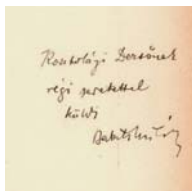 Kosztolányi Dezsőnek
régi szeretettel
küldi
Babits Mihály